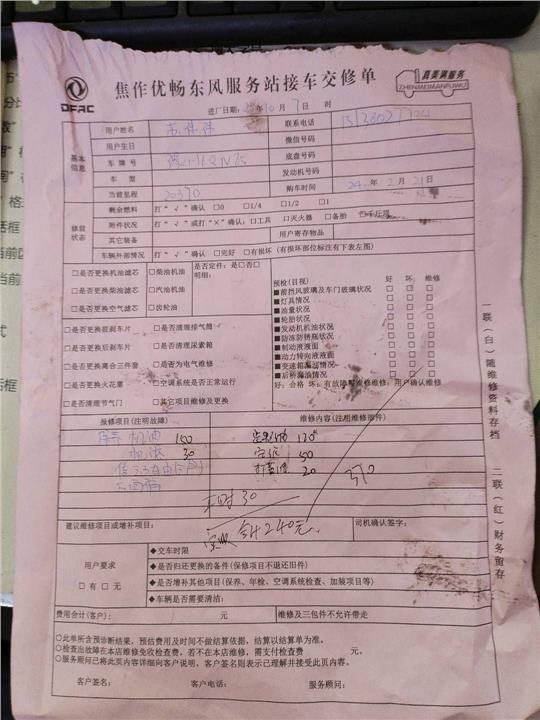 DFAC
焦作优畅东风服务站接车交修单
真美满服务
ZHENMEIMANFUWU
进厂日期: 年10月7日 时
基本信息
用户姓名
联系电话
用户生日
微信号码
车牌号
底盘号码
车型
发动机号码
当前里程
购车时间
年2月21日
修前状态
剩余燃料 打“√”确认 □0 □1/4 □1/2 □1
附件状况 打“√”或打“×”确认:□工具 □灭火器 □备胎
其它装备
用户寄存物品
车辆外部情况 打“√”确认 □完好 □有损坏(有损坏部位标注有下表左图)
□是否更换机油滤芯 □柴油机油
是否定件:是□否□
明细:
□是否更换柴油滤芯 □汽油机油
□是否更换空气滤芯 □齿轮油
□是否更换前刹车片 □是否清理排气筒
□是否更换后刹车片 □是否清理尿素箱
□是否更换离合三件套 □是否为电气维修
□是否更换火花塞 □空调系统是否正常运行
□是否清理节气门 □其它项目维修及更换
预检(目视) 好 坏 维修
■前挡风玻璃及车门玻璃状况 □ □ □
■灯具情况 □ □ □
■油量状况 □ □ □
■轮胎状况 □ □ □
■发动机机油状况 □ □ □
■防冻防锈瓶状况 □ □ □
■制动液液面 □ □ □
■动力转向液液面 □ □ □
■变速箱漏油情况 □ □ □
■后桥漏油情况 □ □ □
好:合格 坏:有故障需维修维修:用户确认维修
报修项目(注明故障)
维修内容(注明维修部件)
机油 150
120
30
50
20
370
工时30
实收 合计240元
建议维修项目或增补项目:
司机确认签字:
用户要求
□有 □无
◆交车时限
◆是否归还更换的备件(保修项目不退还旧件)
◆是否增补其他项目(保养、年检、空调系统检查、加装项目等)
◆车辆是否需要清洁:
费用合计(客户): 元
维修及三包件不允许带走
○此单所含预诊断结果,预估费用及时间不做结算依据,结算以结算单为准。
○检查出故障在本店维修免收检查费,若不在本店维修,需支付检查费 元。
○服务顾问已将此页内容详细向客户说明,客户签名则表示已理解并接受此页内容。
客户签名: 客户电话: 服务顾问:
一联(白)随维修资料存档
二联(红)财务留存